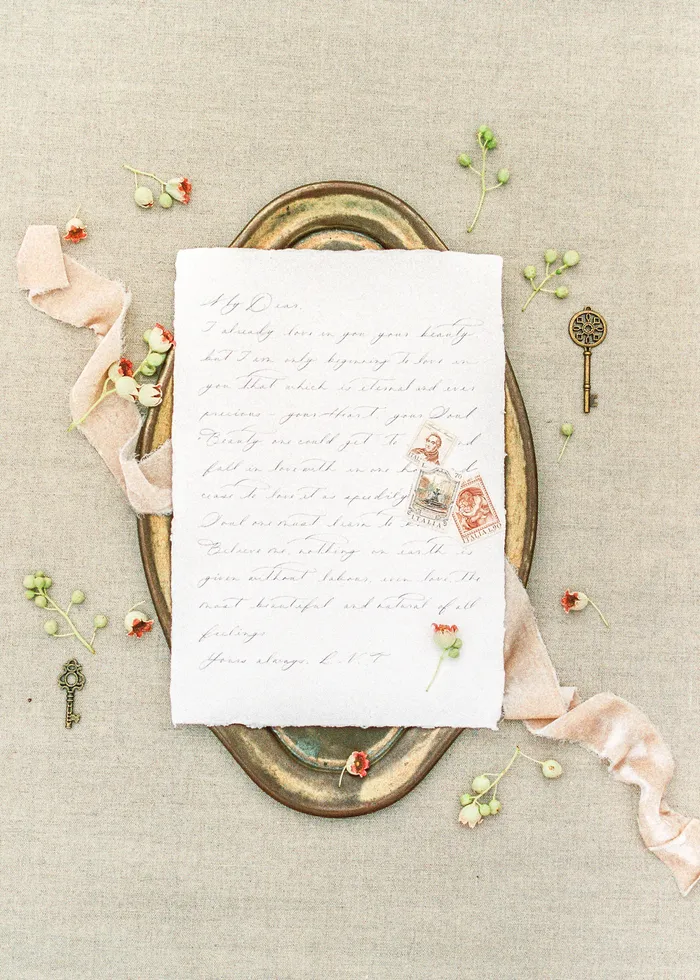 My Dear,
I already love in you your beauty
but I am only beginning to love in
you that which is eternal and ever
precious – your Heart, your Soul
Beauty one could get to nd
fall in love with in one ho d
cease to love it as speedily
Soul one must learn to
Believe me, nothing on earth is
given without labour, even love, the
most beautiful and natural of all
feelings
Yours always. L. N. T
ITALIA
ITALIA L.90